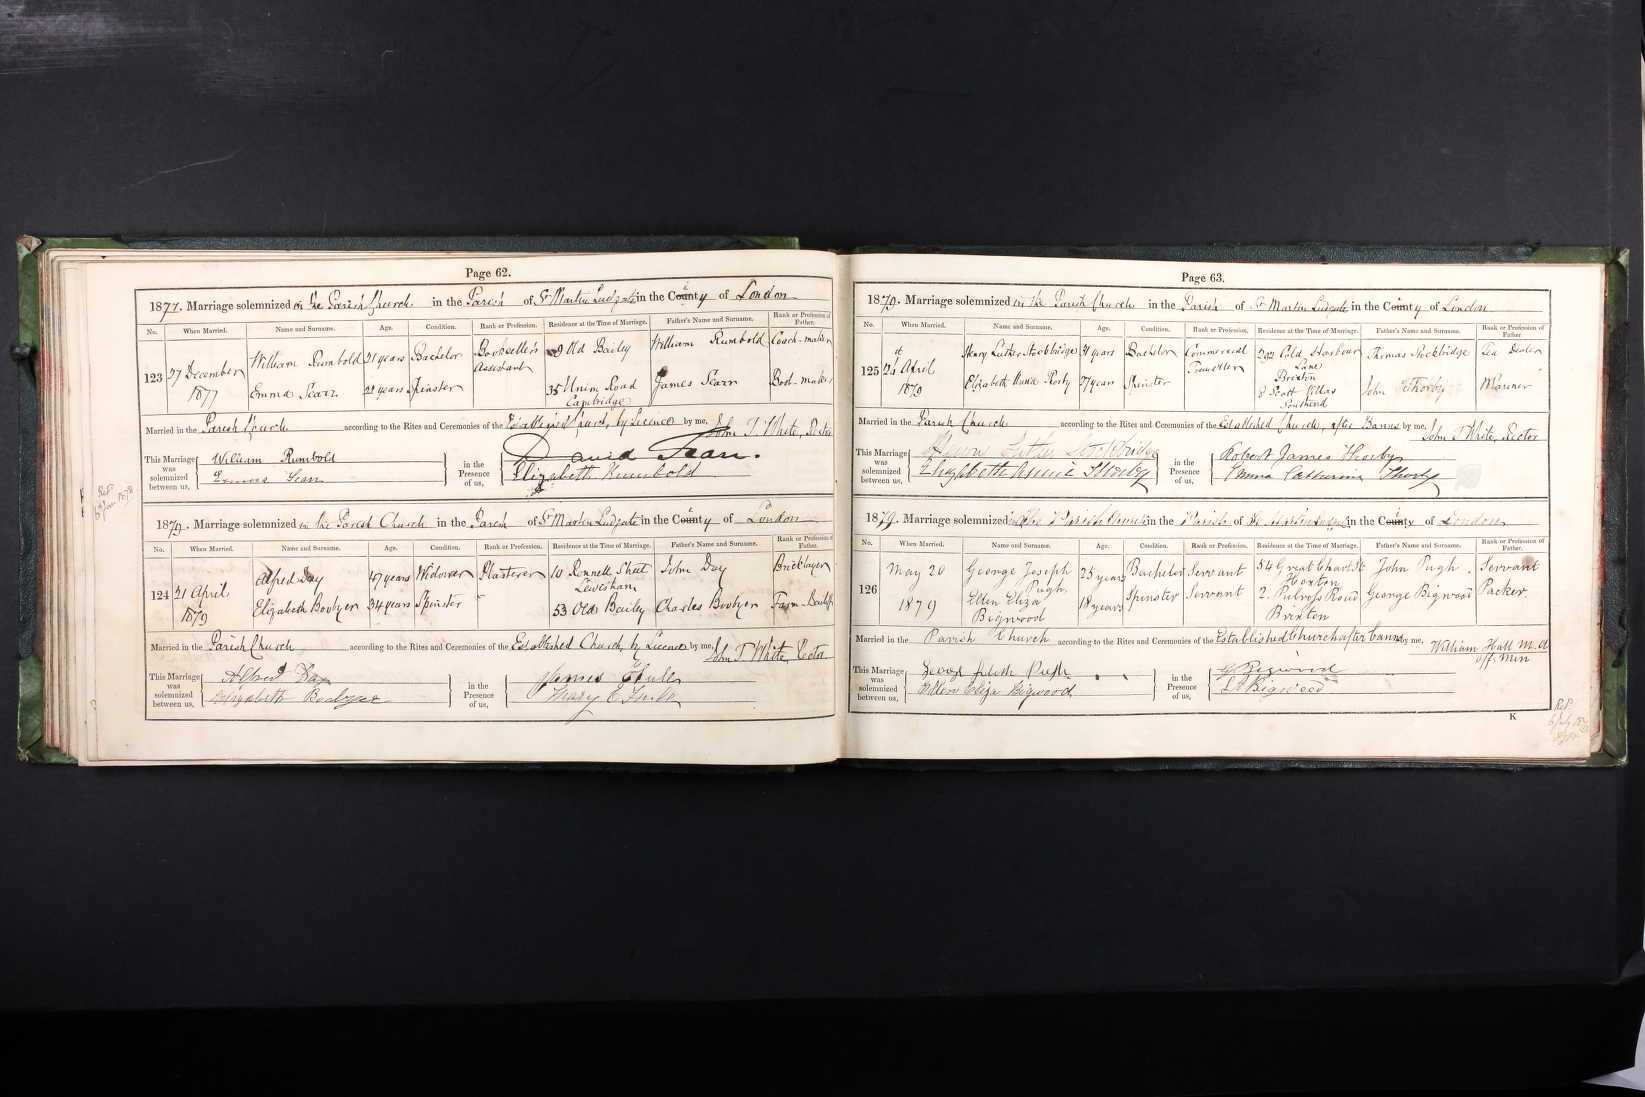 Page 62.
1877. Marriage solemnized in the Parish Church in the Parish of St Martin Ludgate in the County of London
No. When Married. Name and Surname. Age. Condition. Rank or Profession. Residence at the Time of Marriage. Father's Name and Surname. Rank or Profession of Father.
123 27 December 1877 William Rumbold 21 years Bachelor Bookseller's Assistant Old Bailey William Rumbold Coach-maker
Emma Searn 22 years Spinster 35 Union Road Cambridge James Searn Boot-maker
Married in the Parish Church according to the Rites and Ceremonies of the Established Church, by Licence by me, John T. White, Rector
This Marriage was solemnized between us, William Rumbold
in the Presence of us, David Searn.
Elizabeth Rumbold
1879. Marriage solemnized in the Parish Church in the Parish of St Martin Ludgate in the County of London
No. When Married. Name and Surname. Age. Condition. Rank or Profession. Residence at the Time of Marriage. Father's Name and Surname. Rank or Profession of Father.
124 21 April 1879 Alfred Day 47 years Widower Plasterer 10 Rennell Street Lewisham John Day Bricklayer
Elizabeth Boobyer 34 years Spinster 53 Old Bailey Charles Boobyer Farm-Bailiff
Married in the Parish Church according to the Rites and Ceremonies of the Established Church, by Licence by me, John T White, Rector
This Marriage was solemnized between us, Alfred Day
Elizabeth Boobyer
in the Presence of us, James
Mary E
Page 63.
1879. Marriage solemnized in the Parish Church in the Parish of St Martin Ludgate in the County of London
No. When Married. Name and Surname. Age. Condition. Rank or Profession. Residence at the Time of Marriage. Father's Name and Surname. Rank or Profession of Father.
125 21st April 1879 Henry Luther Stockbridge 31 years Bachelor Commercial Traveller Cold Harbour Lane Brixton Thomas Stockbridge Tea Dealer
Elizabeth Annie Thorby 27 years Spinster 8 Scott Villas Southend John Thorby Mariner
Married in the Parish Church according to the Rites and Ceremonies of the Established Church, after Banns by me, John T White, Rector
This Marriage was solemnized between us, Henry Luther Stockbridge
Elizabeth Annie Thorby
in the Presence of us, Robert James Thorby
Emma Catherine Thorby
1879. Marriage solemnized in the Parish Church in the Parish of St Martin Ludgate in the County of London
No. When Married. Name and Surname. Age. Condition. Rank or Profession. Residence at the Time of Marriage. Father's Name and Surname. Rank or Profession of Father.
126 May 20 1879 George Joseph Pugh 25 years Bachelor Servant 54 Great Chart St Hoxton John Pugh Servant
Ellen Eliza Bigwood 18 years Spinster Servant 2. Pulross Road Brixton George Bigwood Packer
Married in the Parish Church according to the Rites and Ceremonies of the Established Church after Banns by me, William Hall M.A
Off. Min
This Marriage was solemnized between us, George Joseph Pugh
Ellen Eliza Bigwood
in the Presence of us, G Bigwood
Bigwood
K